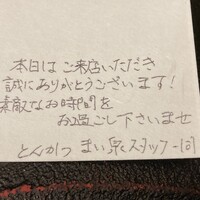 本日は ご来店いただき
誠にありがとうございます!
素敵なお時間を
お過ごし下さいませ
とんかつ まい泉 スタッフ一同